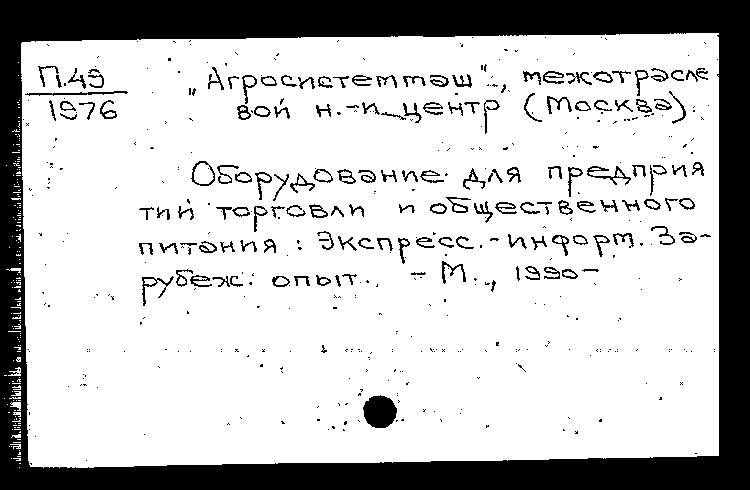 П.49
1976
„Агросистеммаш", межотрасле
вой н.-и. центр (Москва).
Оборудование для предприя
тий торговли и общественного
питания: Экспресс.-информ. За-
рубеж. опыт. - М., 1990-